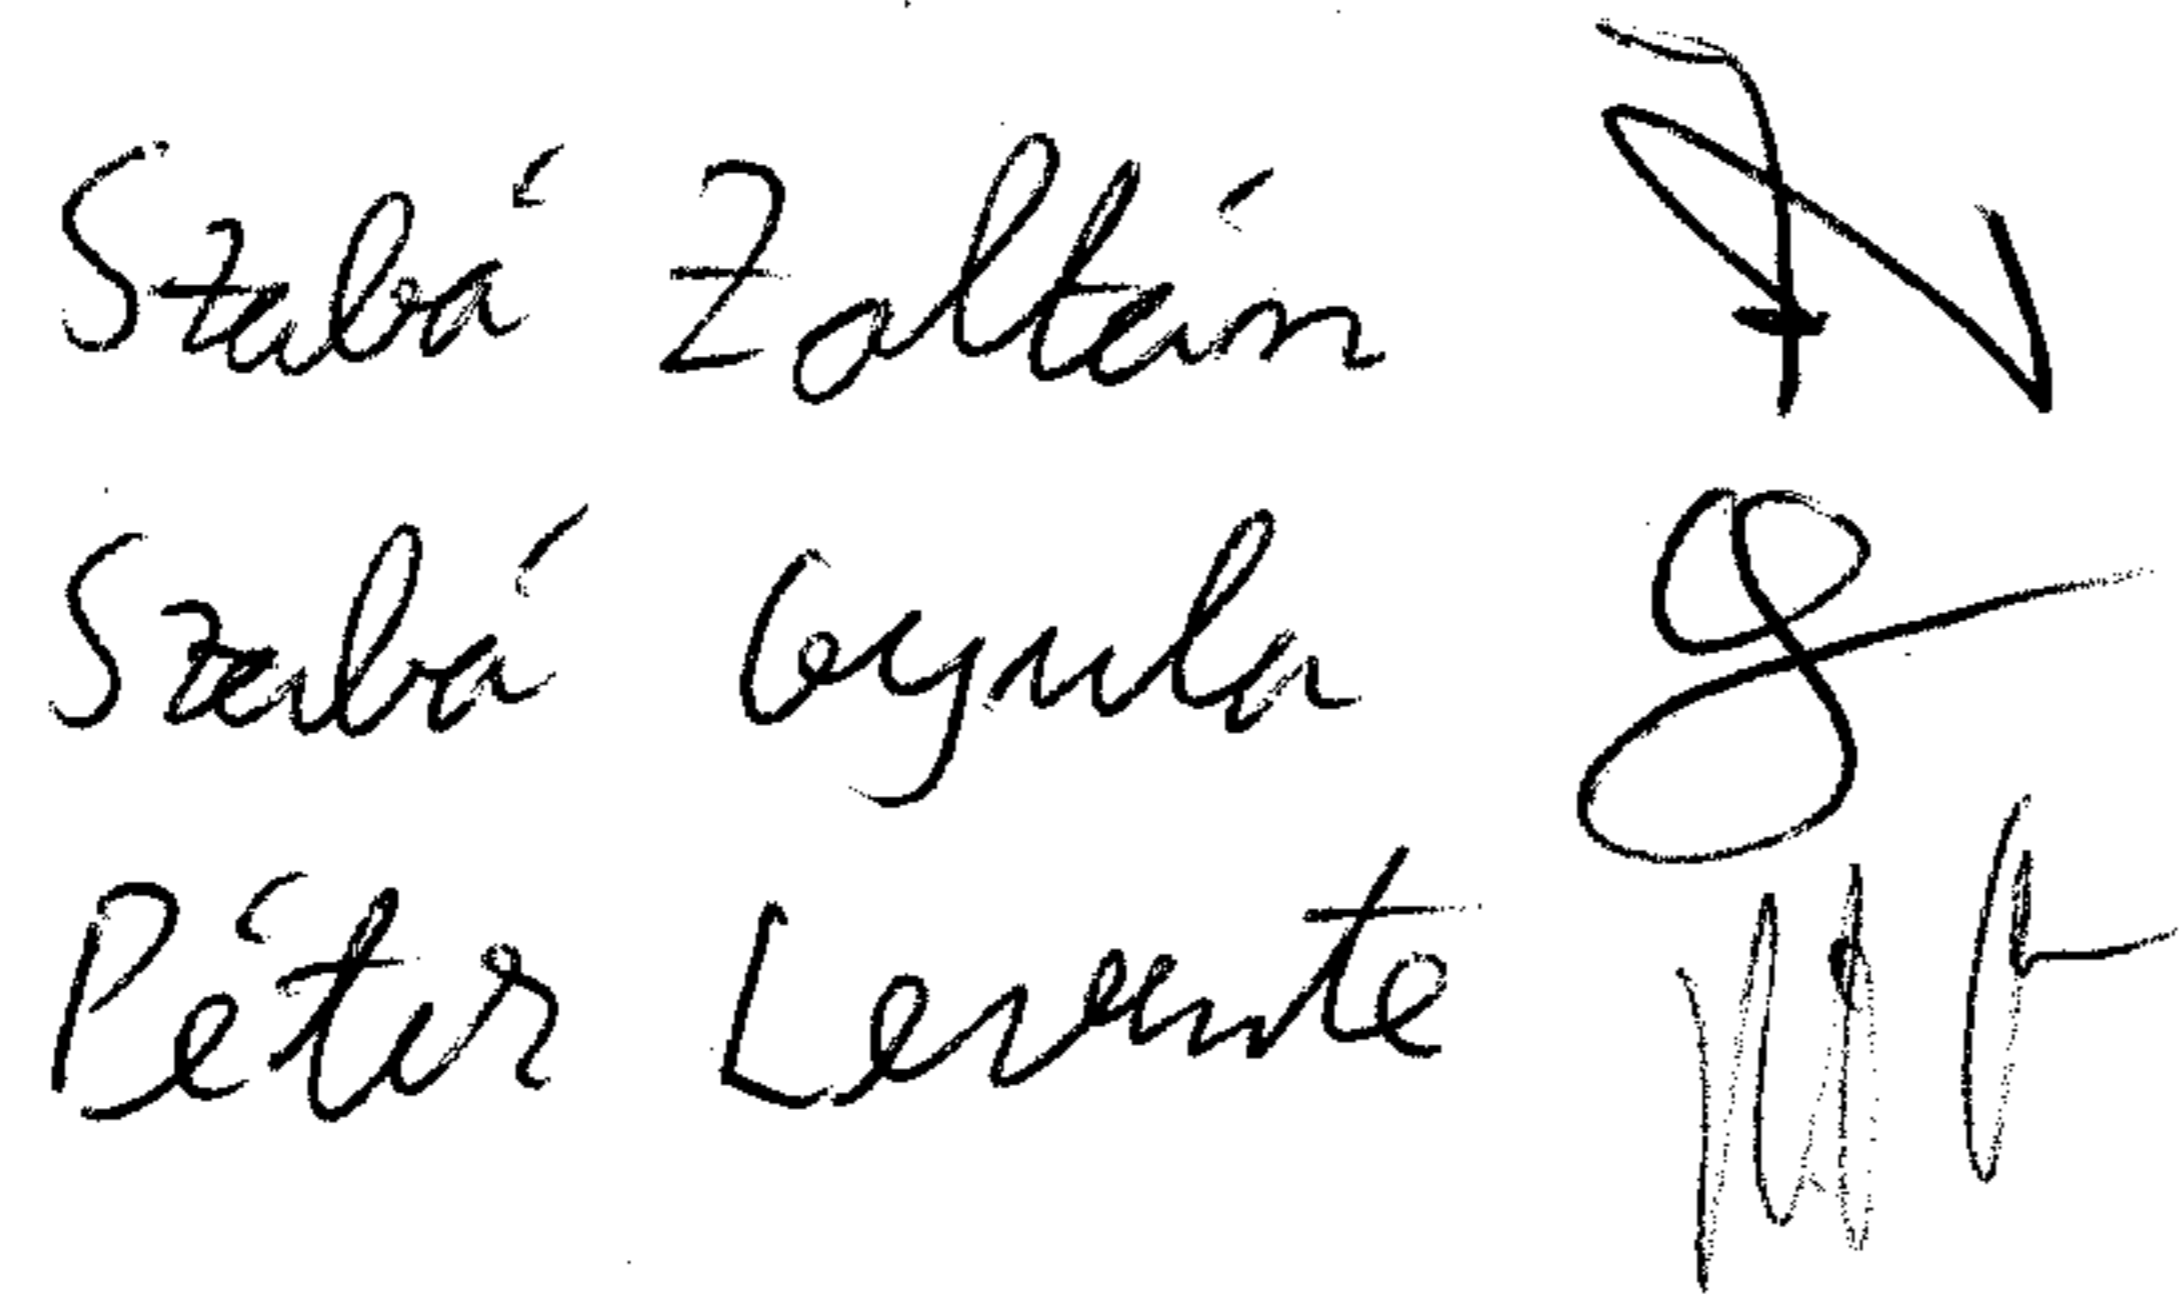 Szabó Zoltán
Szabó Gyula
Péter Levente